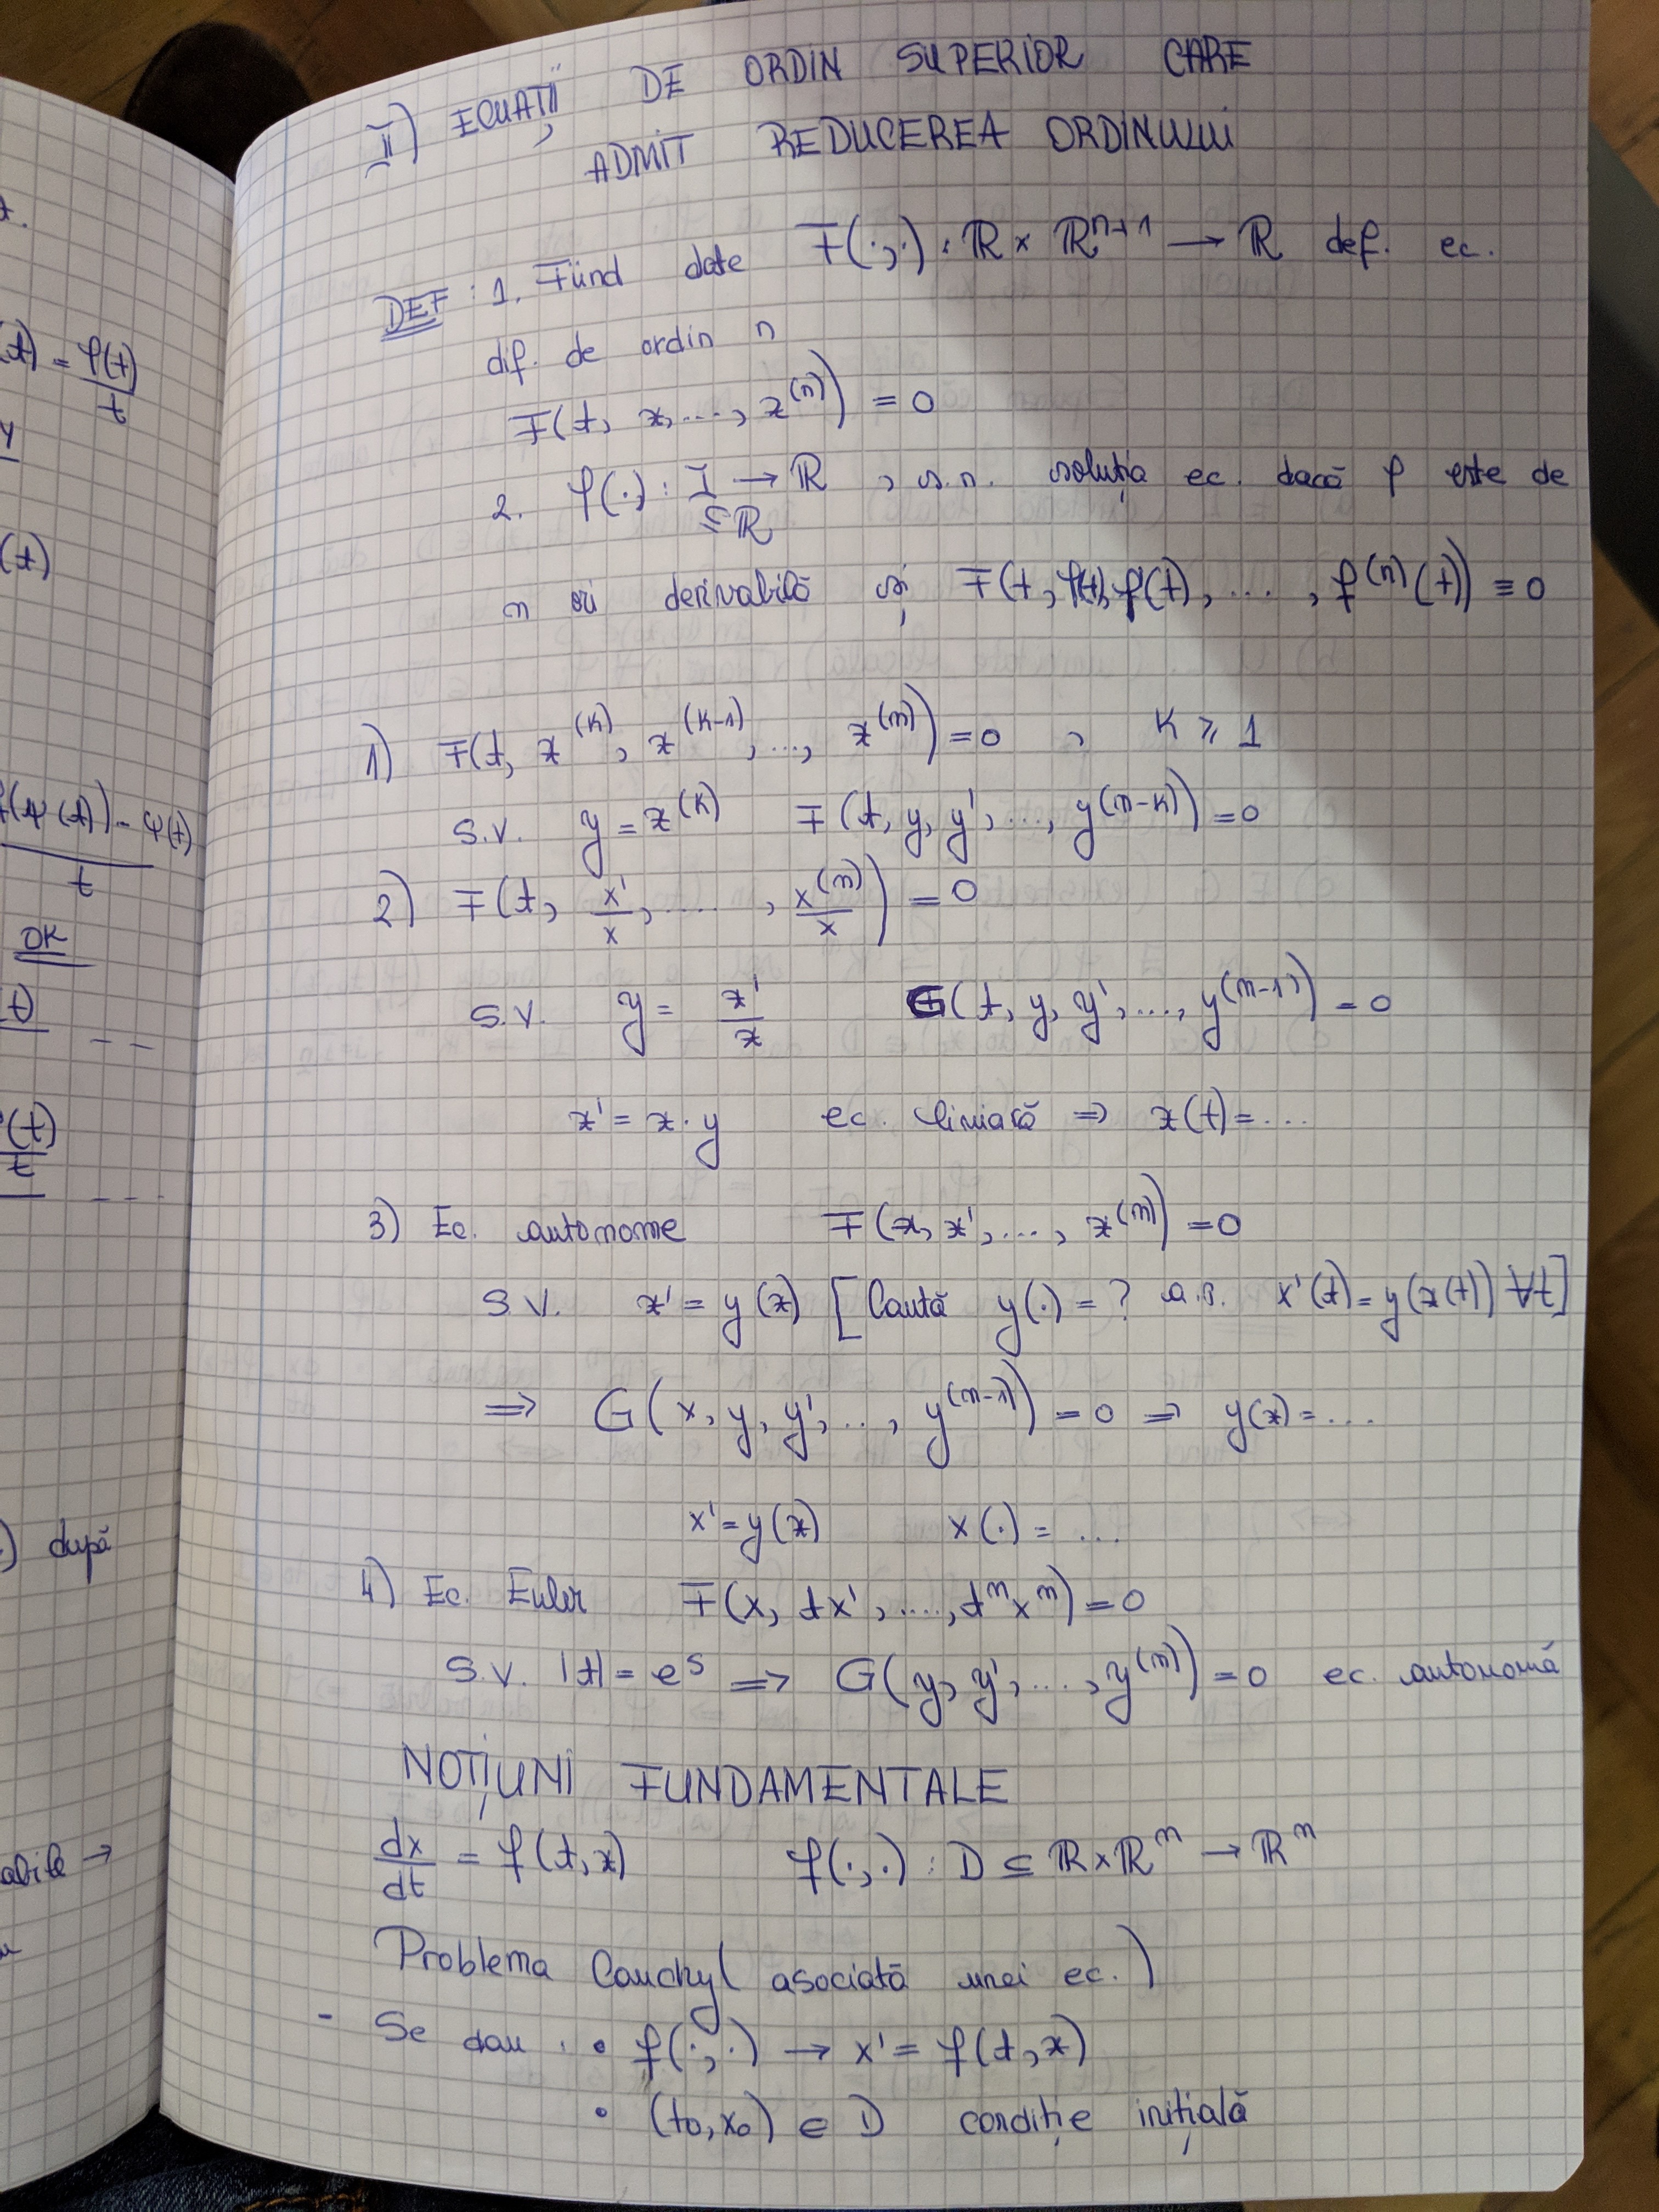 t.
(t) = φ(t)/t
y
(t)
f(ψ(t)) - ψ(t) / t
OK
(t)
- -
(t)/t
- - -
) după
abile →
II) ECUAȚII DE ORDIN SUPERIOR CARE
ADMIT REDUCEREA ORDINULUI
DEF: 1. Fiind date F(·,·) : ℝ × ℝⁿ⁺¹ → ℝ def. ec.
dif. de ordin n
F(t, x, ..., x⁽ⁿ⁾) = 0
2. φ(·) : I → ℝ , s.n. soluția ec. dacă φ este de
⊆ ℝ
n ori derivabilă și F(t, φ(t), φ'(t), ...., φ⁽ⁿ⁾(t)) ≡ 0
1) F(t, x⁽ᵏ⁾, x⁽ᵏ⁻¹⁾, ..., x⁽ⁿ⁾) = 0 , K ⩾ 1
S.V. y = x⁽ᵏ⁾ F(t, y, y', ..., y⁽ⁿ⁻ᵏ⁾) = 0
2) F(t, x'/x, ...., x⁽ⁿ⁾/x) = 0
S.V. y = x'/x G(t, y, y', ..., y⁽ⁿ⁻¹⁾) = 0
x' = x · y ec. liniară ⇒ x(t) = ...
3) Ec. autonome F(x, x', ..., x⁽ⁿ⁾) = 0
S.V. x' = y(x) [Caută y(·) = ? a.î. x'(t) = y(x(t)) ∀t]
⇒ G(x, y, y', ..., y⁽ⁿ⁻¹⁾) = 0 ⇒ y(x) = ...
x' = y(x) x(·) = ...
4) Ec. Euler F(x, tx', ...., tⁿxⁿ) = 0
S.V. |t| = eˢ ⇒ G(y, y', ..., y⁽ⁿ⁾) = 0 ec. autonomă
NOȚIUNI FUNDAMENTALE
dx/dt = f(t, x) f(·,·) : D ⊆ ℝ×ℝⁿ → ℝⁿ
Problema Cauchy( asociată unei ec.)
- Se dau : • f(·,·) → x' = f(t, x)
• (t₀, x₀) ∈ D condiție inițială